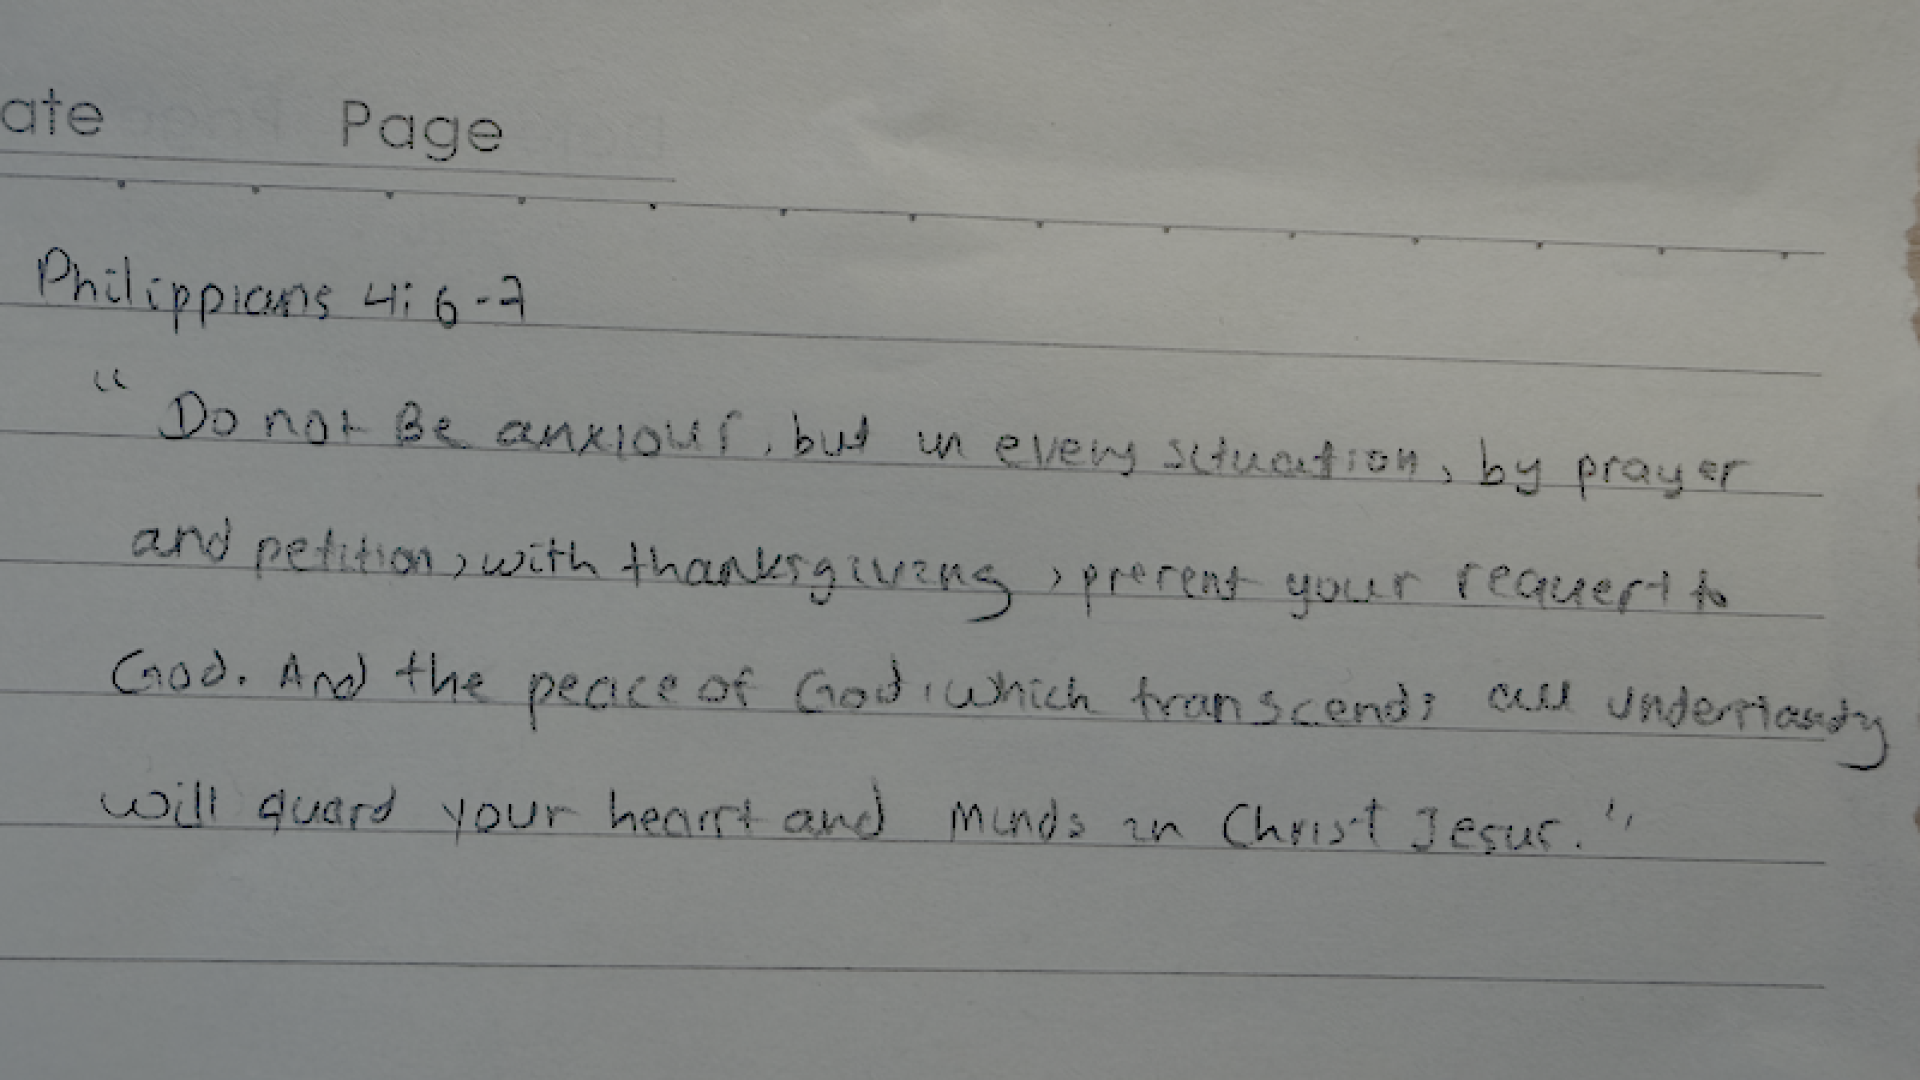 ate Page
Philippians 4:6-7
"Do not Be anxious, but in every situation, by prayer
and petition, with thanksgiving, present your request to
God. And the peace of God, which transcends all understandy
will guard your heart and minds in Christ Jesus."